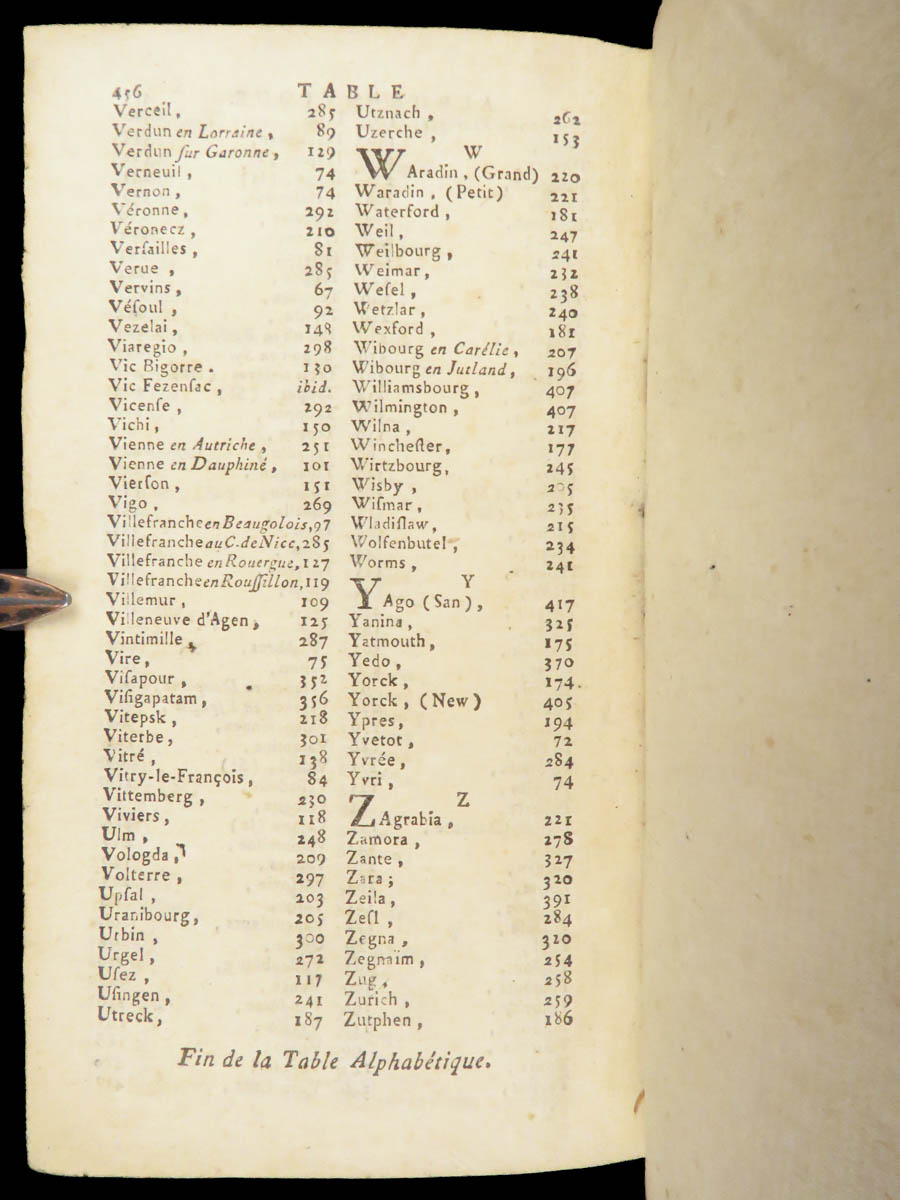 456 TABLE
Verceil, 285
Verdun en Lorraine, 89
Verdun ſur Garonne, 129
Verneuil, 74
Vernon, 74
Véronne, 292
Véronecz, 210
Verſailles, 81
Verue, 285
Vervins, 67
Véſoul, 92
Vezelai, 148
Viaregio, 298
Vic Bigorre. 130
Vic Fezenſac, ibid.
Vicenſe, 292
Vichi, 150
Vienne en Autriche, 251
Vienne en Dauphiné, 101
Vierſon, 151
Vigo, 269
Villefranche en Beaugolois, 97
Villefranche au C. de Nice, 285
Villefranche en Rouergue, 127
Villefranche en Rouſſillon, 119
Villemur, 109
Villeneuve d'Agen, 125
Vintimille, 287
Vire, 75
Viſapour, 352
Viſigapatam, 356
Vitepsk, 218
Viterbe, 301
Vitré, 138
Vitry-le-François, 84
Vittemberg, 230
Viviers, 118
Ulm, 248
Vologda, 209
Volterre, 297
Upſal, 203
Uranibourg, 205
Urbin, 300
Urgel, 272
Uſez, 117
Uſingen, 241
Utreck, 187
Utznach, 262
Uzerche, 153
W
WAradin, (Grand) 220
Waradin, (Petit) 221
Waterford, 181
Weil, 247
Weilbourg, 241
Weimar, 232
Weſel, 238
Wetzlar, 240
Wexford, 181
Wibourg en Carélie, 207
Wibourg en Jutland, 196
Williamsbourg, 407
Wilmington, 407
Wilna, 217
Wincheſter, 177
Wirtzbourg, 245
Wisby, 205
Wiſmar, 235
Wladiſlaw, 215
Wolfenbutel, 234
Worms, 241
Y
YAgo (San), 417
Yanina, 325
Yatmouth, 175
Yedo, 370
Yorck, 174.
Yorck, (New) 405
Ypres, 194
Yvetot, 72
Yvrée, 284
Yvri, 74
Z
ZAgrabia, 221
Zamora, 278
Zante, 327
Zara; 320
Zeila, 391
Zeſl, 284
Zegna, 320
Zegnaïm, 254
Zug, 258
Zurich, 259
Zutphen, 186
Fin de la Table Alphabétique.